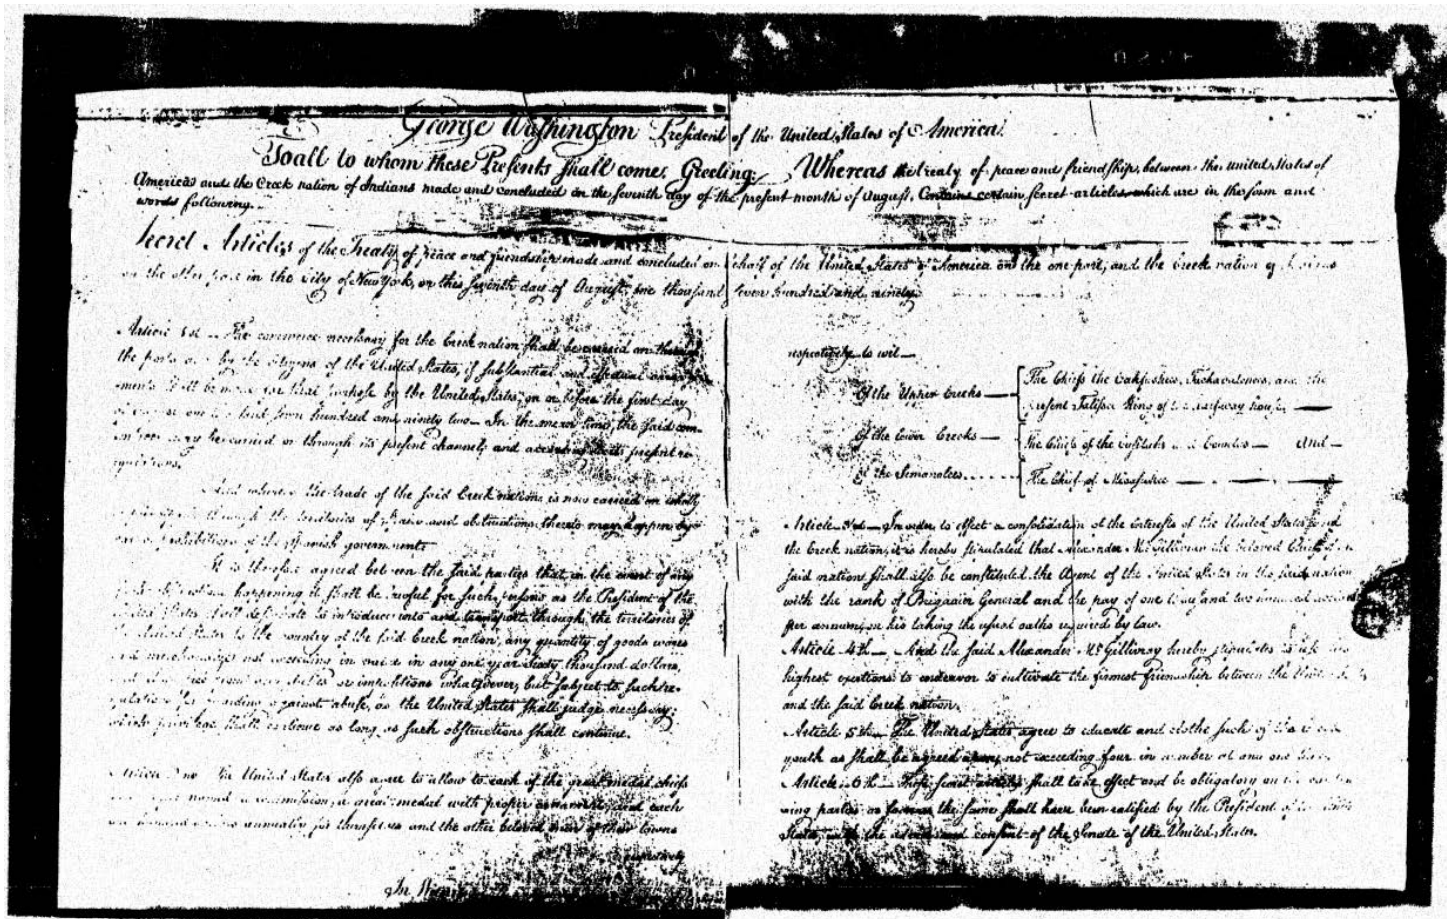 George Washington President of the United States of America.
To all to whom these Presents shall come, Greeting: Whereas the treaty of peace and friendship, between the United States of
America and the Creek nation of Indians made and concluded on the seventh day of the present month of August, Contains certain secret articles which are in the form and
words following.
Secret Articles of the Treaty of peace and friendship made and concluded on behalf of the United States of America on the one part, and the Creek nation of
on the other part in the City of New York, on this seventh day of August, one thousand seven hundred and ninety.
Article 1st The commerce necessary for the Creek nation shall be carried on through
the ports and by the citizens of the United States, if substantial and effectual
shall be made for that purpose by the United States, on or before the first day
of one thousand seven hundred and ninety two. In the mean time, the said com-
may be carried on through its present channels and according to its present re-
gulations.
And whereas the trade of the said Creek nation is now carried on wholly
through the territories of and obstructions thereto may happen by
prohibitions of the Spanish government.
It is therefore agreed between the said parties that in the event of any
happening it shall be lawful for such persons as the President of the
United States shall designate to introduce into and transport through the territories of
the United States to the country of the said Creek nation, any quantity of goods wares
and merchandize not exceeding in value in any one year sixty thousand dollars,
and free from any duties or impositions whatsoever, but subject to such re-
gulations for guarding against abuse, as the United States shall judge necessary;
which privilege shall continue as long as such obstructions shall continue.
Article 2nd The United States also agree to allow to each of the great medal chiefs
a commission, a great medal with proper ornaments, and each
one hundred dollars annually for themselves and the other beloved men of their towns
respectively
In
respectively to wit
Of the Upper Creeks The Chiefs the Oakfuskees, Tuckabatchees, and the
present Talisse King of the halfway house,
Of the lower Creeks The Chiefs of the and And
Of the Semanolees The Chief of Micasukee
Article 3rd In order to effect a consolidation of the interests of the United States and
the Creek nation, it is hereby stipulated that Alexander McGillivray the beloved Chief of
said nations shall also be constituted the Agent of the United States in the said nation
with the rank of Brigadier General and the pay of one thousand two hundred dollars
per annum, on his taking the usual oaths required by law.
Article 4th And the said Alexander McGillivray hereby stipulates to use his
highest exertions to endeavor to cultivate the firmest friendship between the United
and the said Creek nation.
Article 5th The United States agree to educate and clothe such of the Creek
youth as shall be agreed upon, not exceeding four in number at any one time.
Article 6th These secret articles shall take effect and be obligatory on the contrac-
ting parties as soon as the same shall have been ratified by the President of the United
States, with the advice and consent of the Senate of the United States.